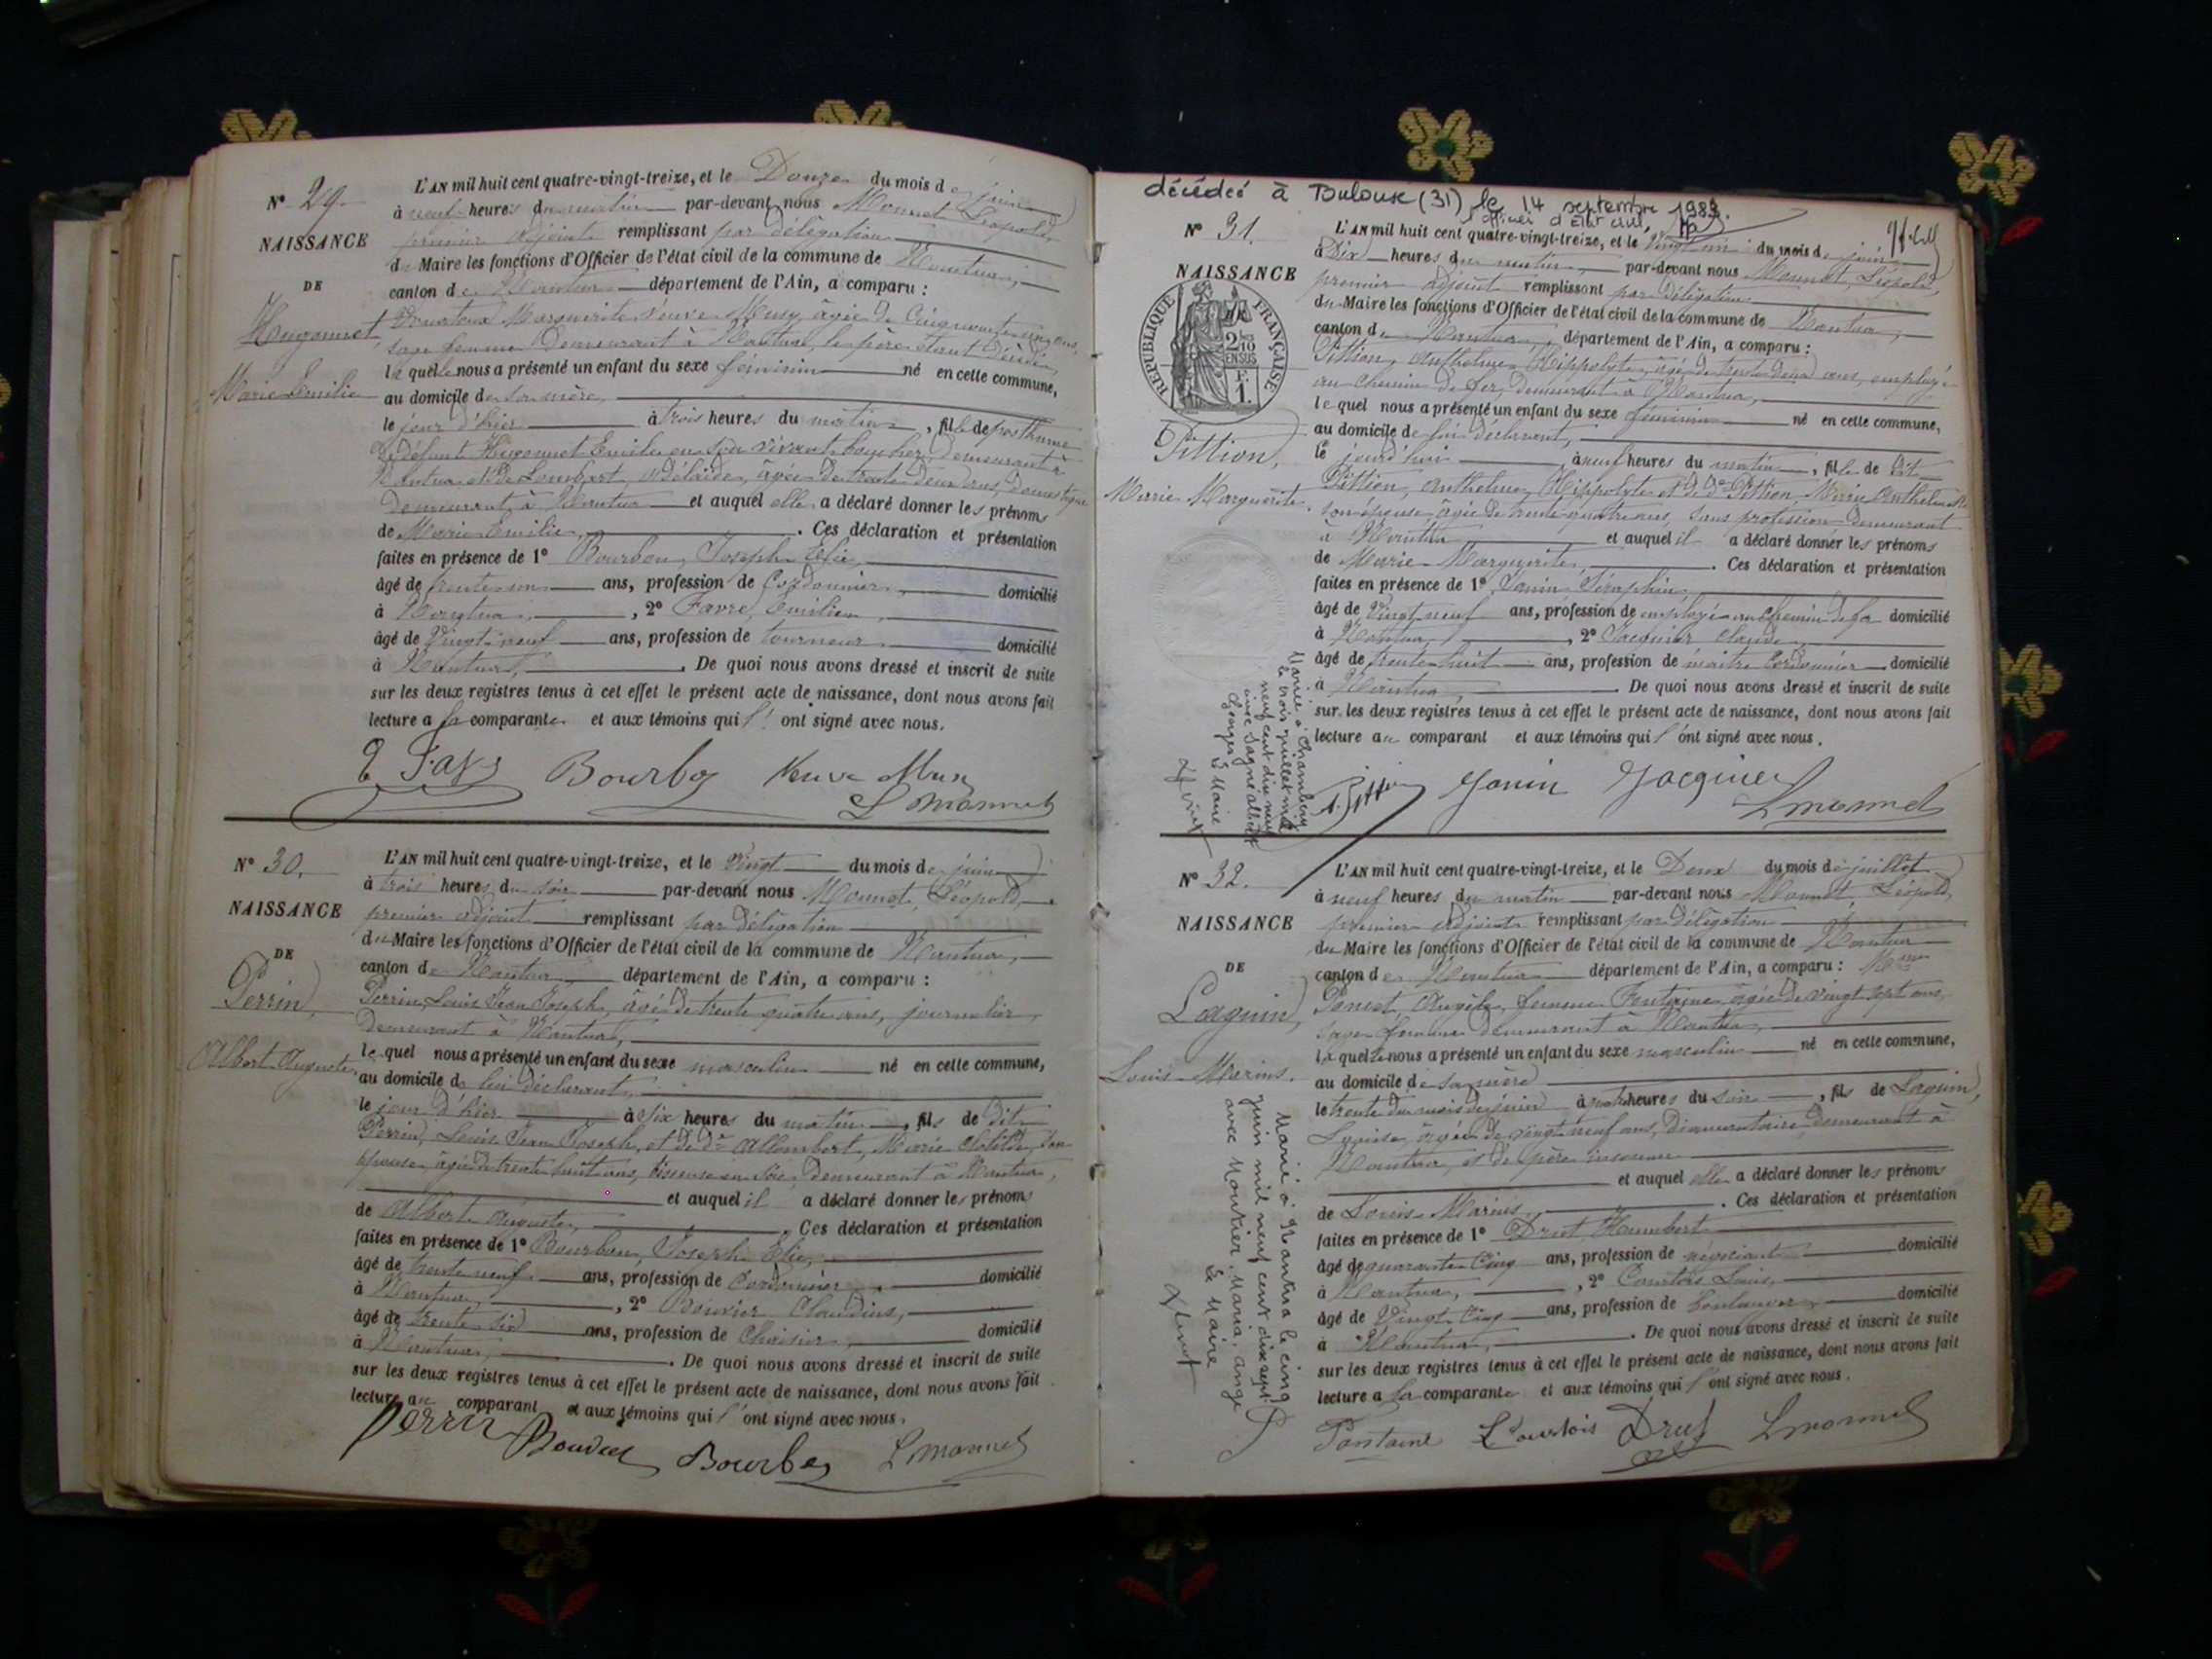 N° 29.
NAISSANCE
DE
Hugonnet,
Marie Emilie
L'AN mil huit cent quatre-vingt-treize, et le Douze du mois de juin
à neuf heures du matin par-devant nous Monnet Léopold,
premier adjoint remplissant par délégation
du Maire les fonctions d'Officier de l'état civil de la commune de Nantua,
canton de Nantua département de l'Ain, a comparu :
Marguerite Veuve Musy, âgée de Cinquante ans,
sage femme demeurant à Nantua, le père étant décédé,
laquelle nous a présenté un enfant du sexe féminin né en cette commune,
au domicile de sa mère,
le jour d'hier à trois heures du matin, fille de posthume
de défunt Hugonnet Emile en son vivant boucher, demeurant à
Nantua, et de Lombart Adélaïde, âgée de trente deux ans, domestique
demeurant à Nantua et auquel elle a déclaré donner les prénoms
de Marie Emilie, . Ces déclaration et présentation
faites en présence de 1° Bourbon, Joseph Elie,
âgé de trente ans, profession de Cordonnier, domicilié
à Nantua, , 2° Favre, Emilien
âgé de Vingt-neuf ans, profession de tourneur domicilié
à Nantua, . De quoi nous avons dressé et inscrit de suite
sur les deux registres tenus à cet effet le présent acte de naissance, dont nous avons fait
lecture a la comparante et aux témoins qui l' ont signé avec nous.
Bourbon Veuve Musy
L Monnet
N° 30.
NAISSANCE
DE
Perrin,
Albert Auguste,
L'AN mil huit cent quatre-vingt-treize, et le Vingt du mois de juin
à trois heures du soir par-devant nous Monnet, Léopold,
premier adjoint remplissant par délégation
du Maire les fonctions d'Officier de l'état civil de la commune de Nantua,
canton de Nantua département de l'Ain, a comparu :
Perrin, Louis Jean Joseph, âgé de trente quatre ans, journalier,
demeurant à Nantua,
lequel nous a présenté un enfant du sexe masculin né en cette commune,
au domicile de lui déclarant,
le jour d'hier à six heures du matin, fils de dit
Perrin, Louis Jean Joseph, et de de Allombert, Marie Clotilde, son
épouse, âgée de trente huit ans, tisseuse en soie, demeurant à Nantua,
et auquel il a déclaré donner les prénoms
de Albert Auguste, . Ces déclaration et présentation
faites en présence de 1° Bourbon, Joseph Elie,
âgé de trente neuf ans, profession de Cordonnier, domicilié
à Nantua, , 2° Bouvier Claudius,
âgé de trente six ans, profession de Chaisier, domicilié
à Nantua, . De quoi nous avons dressé et inscrit de suite
sur les deux registres tenus à cet effet le présent acte de naissance, dont nous avons fait
lecture au comparant et aux témoins qui l'ont signé avec nous.
Perrin Bouvier Bourbon L Monnet
décédée à Toulouse (31) le 14 septembre 1983.
l'officier d'Etat civil,
N° 31.
NAISSANCE
REPUBLIQUE FRANÇAISE
Pittion,
Marie Marguerite.
L'AN mil huit cent quatre-vingt-treize, et le Vingt un du mois de juin
à Dix heures du matin, par-devant nous Monnet, Léopold,
premier adjoint remplissant par délégation
du Maire les fonctions d'Officier de l'état civil de la commune de Nantua,
canton de Nantua, département de l'Ain, a comparu :
Pittion, Anthelme Hippolyte, âgé de trente deux ans, employé
au chemin de fer, demeurant à Nantua,
lequel nous a présenté un enfant du sexe féminin né en cette commune,
au domicile de lui déclarant,
le jourd'hui à neuf heures du matin, fille de dit
Pittion, Anthelme, Hippolyte et de de Pittion, Marie
son épouse âgée de trente quatre ans, sans profession demeurant
à Nantua et auquel il a déclaré donner les prénoms
de Marie Marguerite, . Ces déclaration et présentation
faites en présence de 1° Janin Séraphin,
âgé de Vingt neuf ans, profession de employé au chemin de fer domicilié
à Nantua, , 2° Jacquier Claude,
âgé de trente huit ans, profession de maître Cordonnier domicilié
à Nantua, . De quoi nous avons dressé et inscrit de suite
sur les deux registres tenus à cet effet le présent acte de naissance, dont nous avons fait
lecture au comparant et aux témoins qui l'ont signé avec nous.
Mariée à Chambéry
le trois juillet mil
neuf cent dix neuf
avec Sagne Albert
Georges Le Maire
A. Pittion Janin Jacquier
L Monnet
N° 32.
NAISSANCE
DE
Laguin,
Louis Marius.
L'AN mil huit cent quatre-vingt-treize, et le Deux du mois de juillet
à neuf heures du matin par-devant nous Monnet, Léopold,
premier adjoint remplissant par délégation
du Maire les fonctions d'Officier de l'état civil de la commune de Nantua
canton de Nantua département de l'Ain, a comparu : Mme
Poncet, Angèle, femme Fontaine âgée de vingt sept ans,
sage femme demeurant à Nantua,
laquelle nous a présenté un enfant du sexe masculin né en cette commune,
au domicile de sa mère
le trente du mois de juin à quatre heures du soir, fils de Laguin,
Louise, âgée de vingt neuf ans, demeurant à
Nantua, et de père inconnu
et auquel elle a déclaré donner les prénoms
de Louis Marius, . Ces déclaration et présentation
faites en présence de 1° Drut Humbert
âgé de quarante Cinq ans, profession de négociant domicilié
à Nantua, , 2° Courtois Louis,
âgé de Vingt Cinq ans, profession de boulanger, domicilié
à Nantua, . De quoi nous avons dressé et inscrit de suite
sur les deux registres tenus à cet effet le présent acte de naissance, dont nous avons fait
lecture a la comparante et aux témoins qui l'ont signé avec nous.
Marié à Nantua le cinq
juin mil neuf cent dix sept
avec Moutier, Maria, Ange
Le Maire
Fontaine L Courtois Drut L Monnet